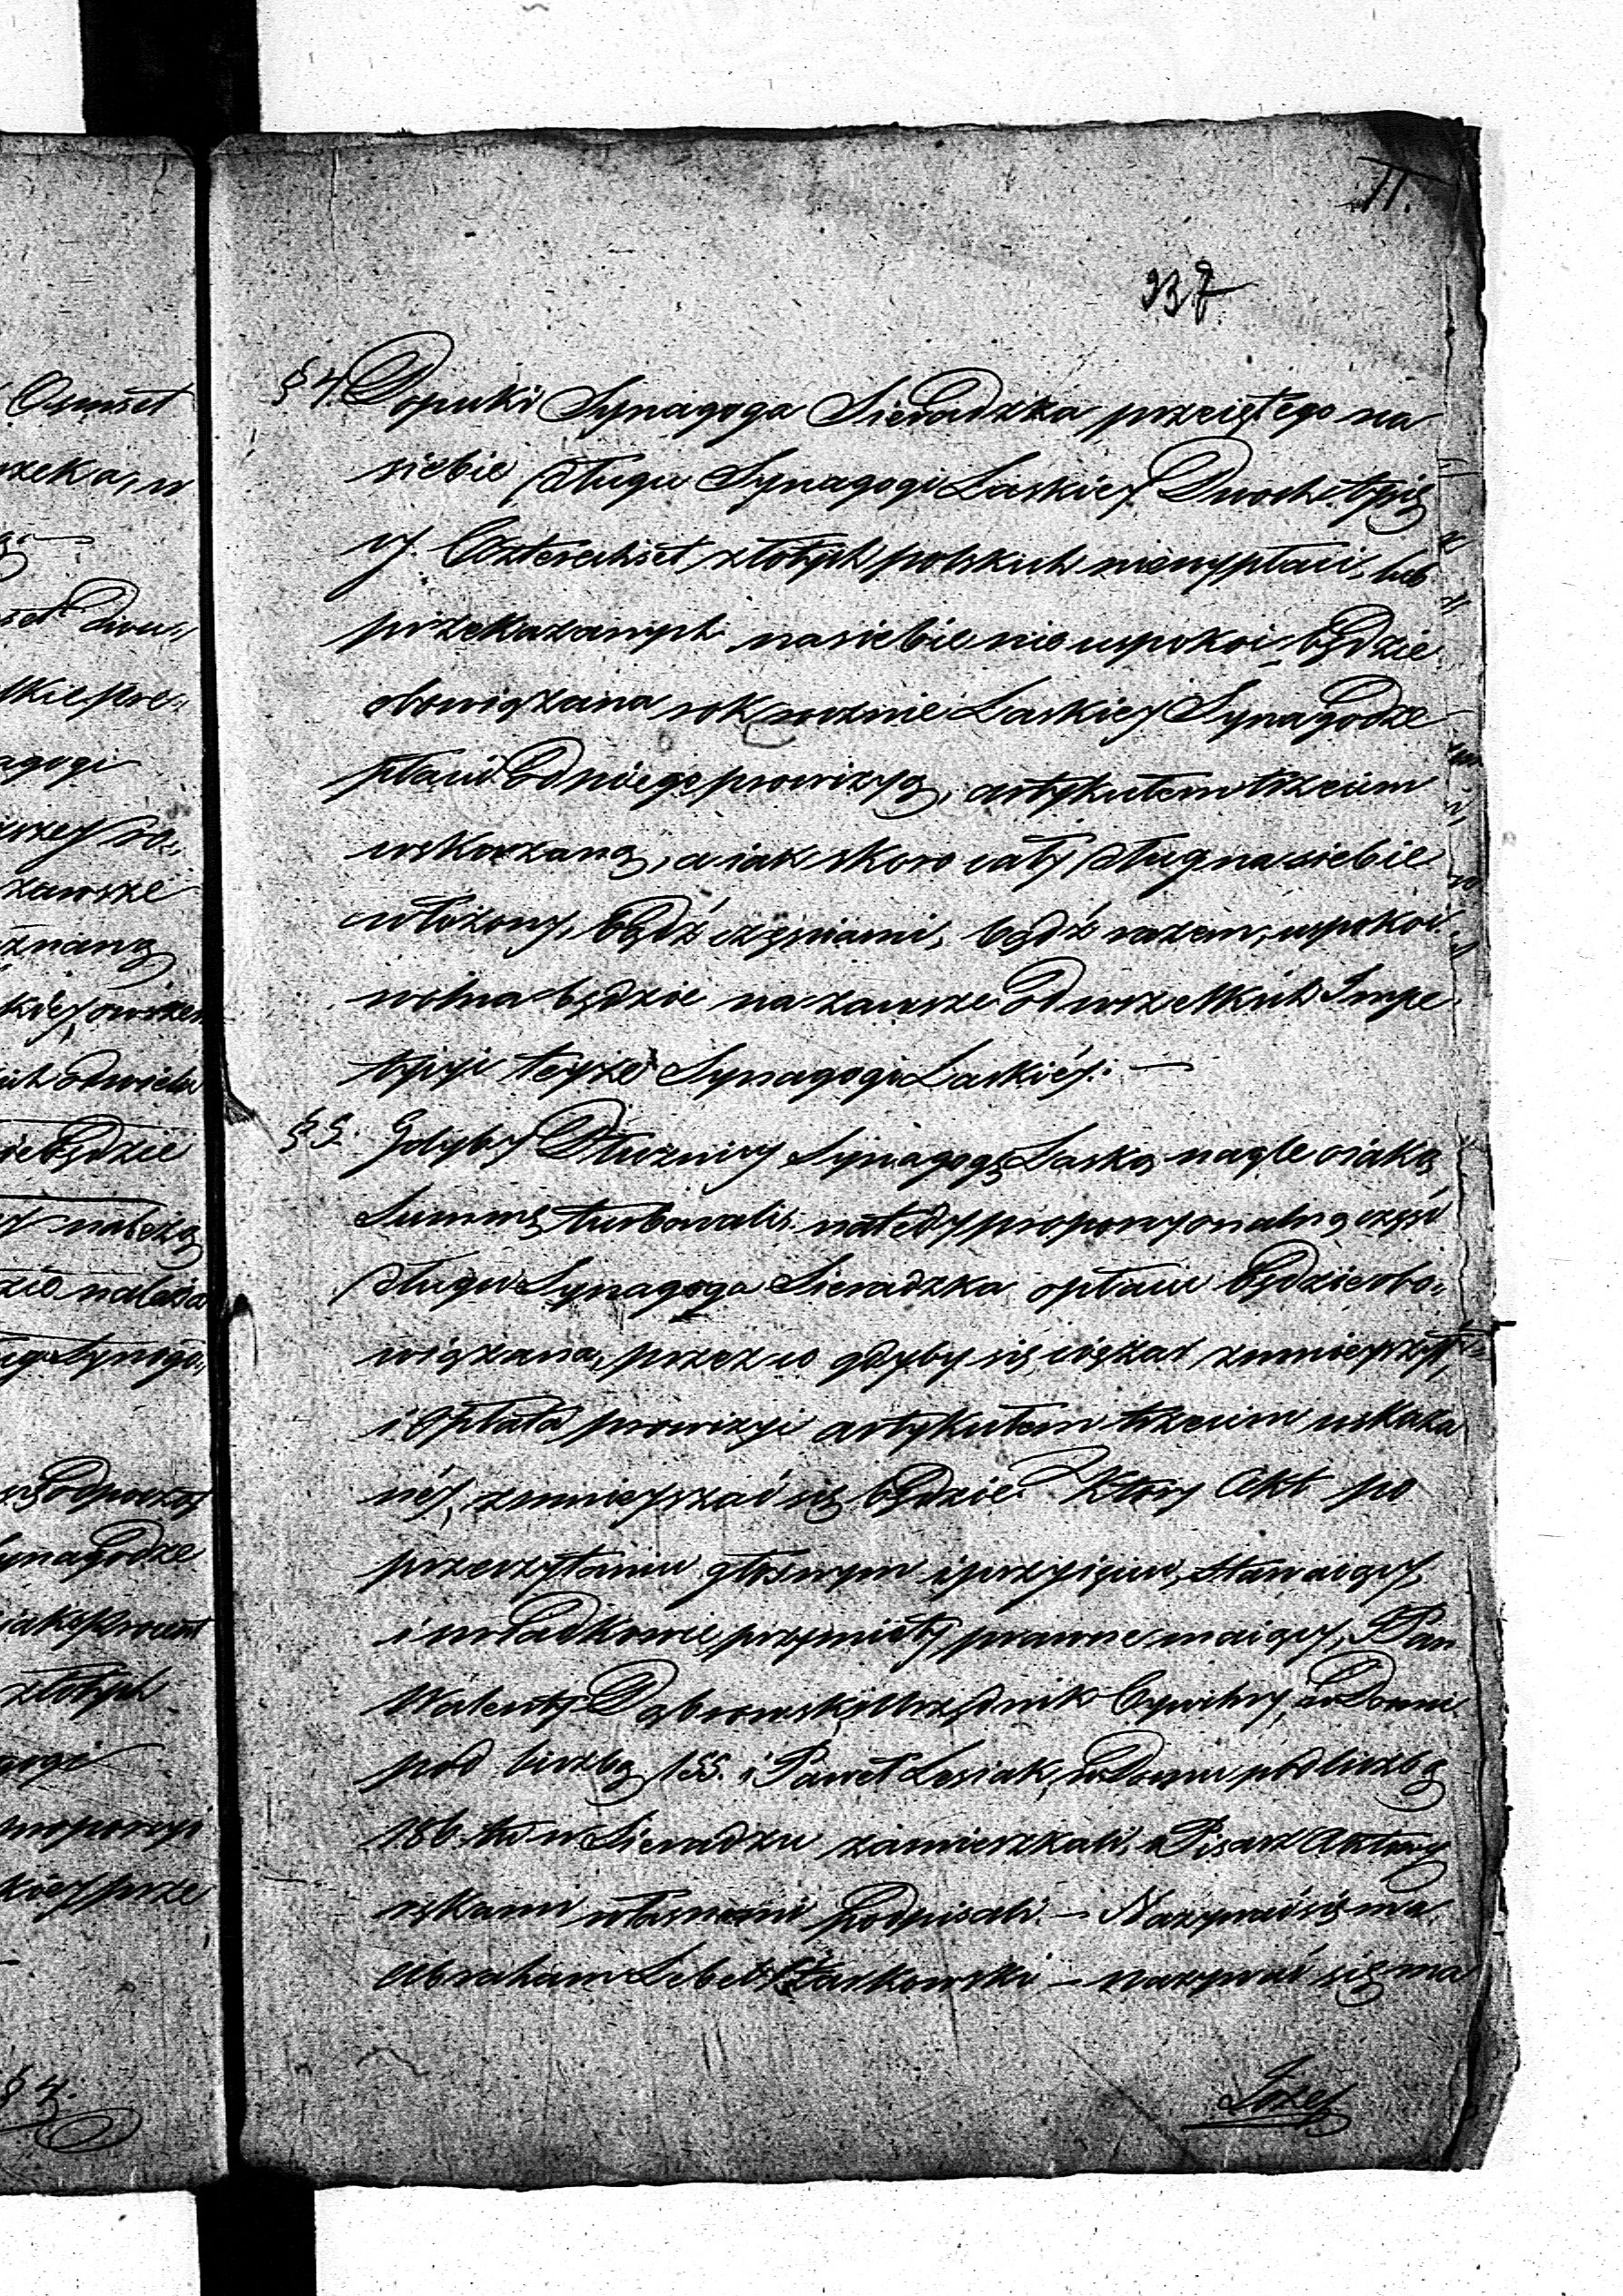 II.
237
§ 4. Dopuki Synagoga Sieradzka przeiętego na
siebie długu Synagogi Laskiey Dwoch tysię
cy Czterechset złotych polskich niewypłaci, lub
przekazanych na siebie nie uspokoi będzie
obowiązana rok rocznie Laskiey Synagodze
płacić Od niego prowizyą, artykułem trzecim
wskazaną, a iak skoro cały dług na siebie
włożony, bądź częściami, bądź razem, uspokoi
wolna będzie na zawsze Od wszelkich Impe
tycyi teyże Synagogi Laskiéy. —
§ 5. Gdyby Dłużnicy Synagogę Laską nagle o iaką
Summę turbowali, natedy proporcyonalną część
długu Synagoga Sieradzka opłacić będzie obo„
wiązana, przez co gdyby się ciężar zmnieyszył,
i Opłata prowizyi artykułem trzecim wskaza
néy, zmnieyszać się będzie. Ktory Akt po
przeczytaniu głosnym i przyięciu, Stawaiący,
i świadkowie przymioty prawne maiący, Pan
Walenty Dąbrowski Urzędnik Cywilny, w Domu
pod liczbą 155. i Paweł Lesiak, w Domu pod liczbą
186. tu w Sieradzu zamieszkali, Pisarz Aktowy
rękami własnemi podpisali. — Nazywać się ma
Abraham Lebel Żarkowski — nazywać się ma
Jozef
Osmset
agogi
zawsze
znaną
będzie
należą
Synago„
Synagodze
złotych
proporcyi
§ 4.